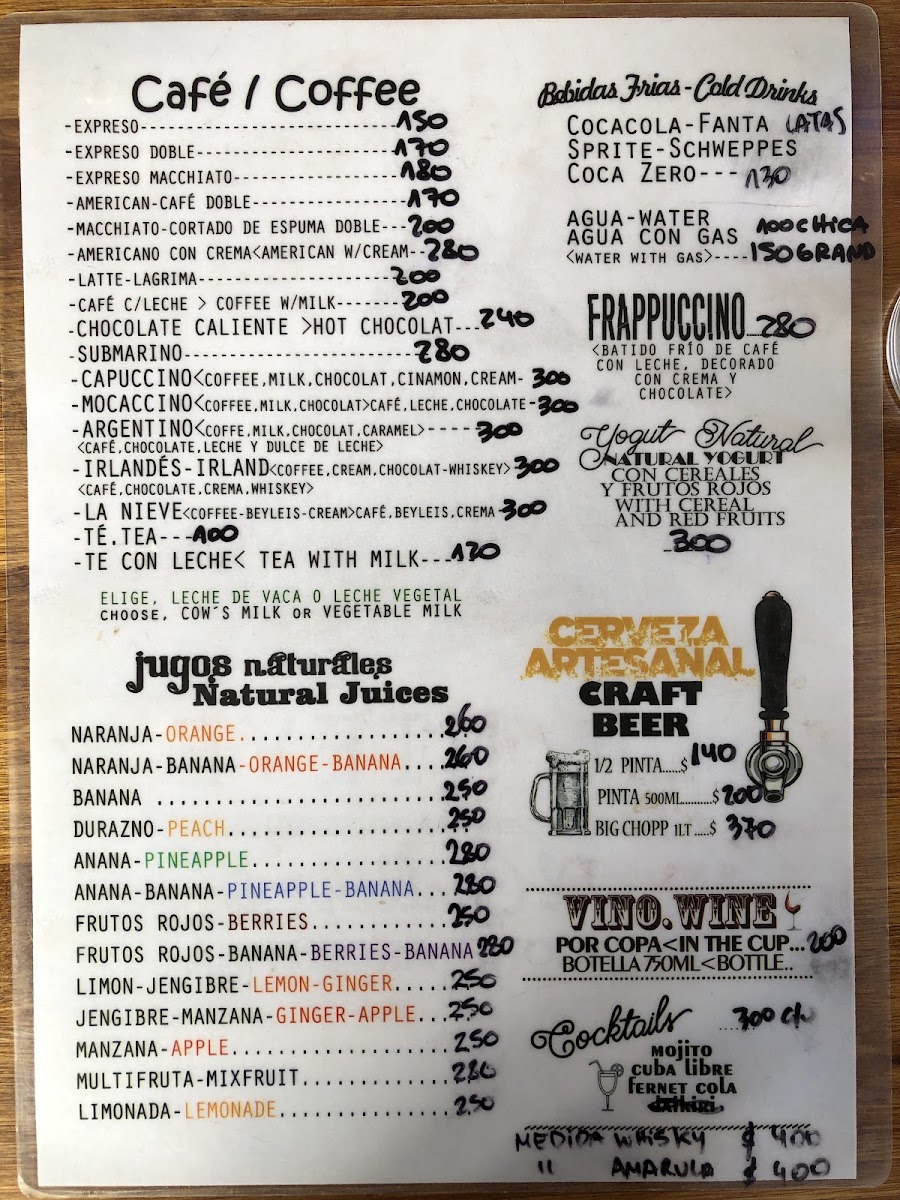 Café / Coffee
-EXPRESO---------------------------150
-EXPRESO DOBLE---------------------170
-EXPRESO MACCHIATO-----------------180
-AMERICAN-CAFÉ DOBLE---------------170
-MACCHIATO-CORTADO DE ESPUMA DOBLE---200
-AMERICANO CON CREMA<AMERICAN W/CREAM--280
-LATTE-LAGRIMA---------------------200
-CAFÉ C/LECHE > COFFEE W/MILK-------200
-CHOCOLATE CALIENTE >HOT CHOCOLAT---240
-SUBMARINO-------------------------280
-CAPUCCINO<COFFEE,MILK,CHOCOLAT,CINAMON,CREAM- 300
-MOCACCINO<COFFEE,MILK,CHOCOLAT>CAFÉ,LECHE,CHOCOLATE-300
-ARGENTINO<COFFE,MILK,CHOCOLAT,CARAMEL>-----300
<CAFÉ,CHOCOLATE,LECHE Y DULCE DE LECHE>
-IRLANDÉS-IRLAND<COFFEE,CREAM,CHOCOLAT-WHISKEY>300
<CAFÉ,CHOCOLATE,CREMA,WHISKEY>
-LA NIEVE<COFFEE-BEYLEIS-CREAM>CAFÉ,BEYLEIS,CREMA-300
-TÉ.TEA---100
-TE CON LECHE< TEA WITH MILK---120
ELIGE, LECHE DE VACA O LECHE VEGETAL
CHOOSE, COW´S MILK OR VEGETABLE MILK
jugos naturales
Natural Juices
NARANJA-ORANGE..................260
NARANJA-BANANA-ORANGE-BANANA....260
BANANA .........................250
DURAZNO-PEACH...................250
ANANA-PINEAPPLE.................280
ANANA-BANANA-PINEAPPLE-BANANA...280
FRUTOS ROJOS-BERRIES............250
FRUTOS ROJOS-BANANA-BERRIES-BANANA 280
LIMON-JENGIBRE-LEMON-GINGER.....250
JENGIBRE-MANZANA-GINGER-APPLE...250
MANZANA-APPLE...................250
MULTIFRUTA-MIXFRUIT.............280
LIMONADA-LEMONADE...............250
Bebidas Frias - Cold Drinks
COCACOLA-FANTA LATAS
SPRITE-SCHWEPPES
COCA ZERO---130
AGUA-WATER
AGUA CON GAS 100 CHICA
<WATER WITH GAS>----150 GRAND
FRAPPUCCINO....280
<BATIDO FRÍO DE CAFÉ
CON LECHE, DECORADO
CON CREMA Y
CHOCOLATE>
Yogut Natural
NATURAL YOGURT
CON CEREALES
Y FRUTOS ROJOS
WITH CEREAL
AND RED FRUITS
300
CERVEZA
ARTESANAL
CRAFT
BEER
1/2 PINTA.....$140
PINTA 500ML..........$200
BIG CHOPP 1LT.....$ 370
VINO.WINE
POR COPA<IN THE CUP...200
BOTELLA 750ML<BOTTLE..
Cocktails .....300 c/u
MOJITO
CUBA LIBRE
FERNET COLA
MEDIDA WHISKY $ 400
" AMARULA $ 400